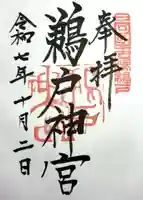 奉拝
鵜戸神宮
令和七年十月二日